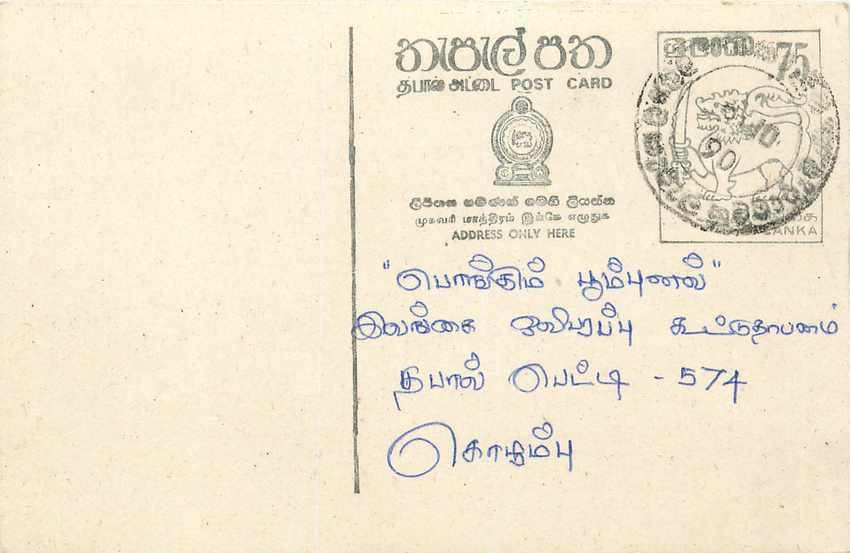 තැපැල් පත
தபால் அட்டை POST CARD
75
ලිපිනය පමණක් මෙහි ලියන්න
முகவரி மாத்திரம் இங்கே எழுதுக
ADDRESS ONLY HERE
LANKA
90
"பொங்கும் பூம்புனல்"
இலங்கை ஒலிபரப்பு கூட்டுதாபனம்
தபால் பெட்டி - 574
கொழும்பு